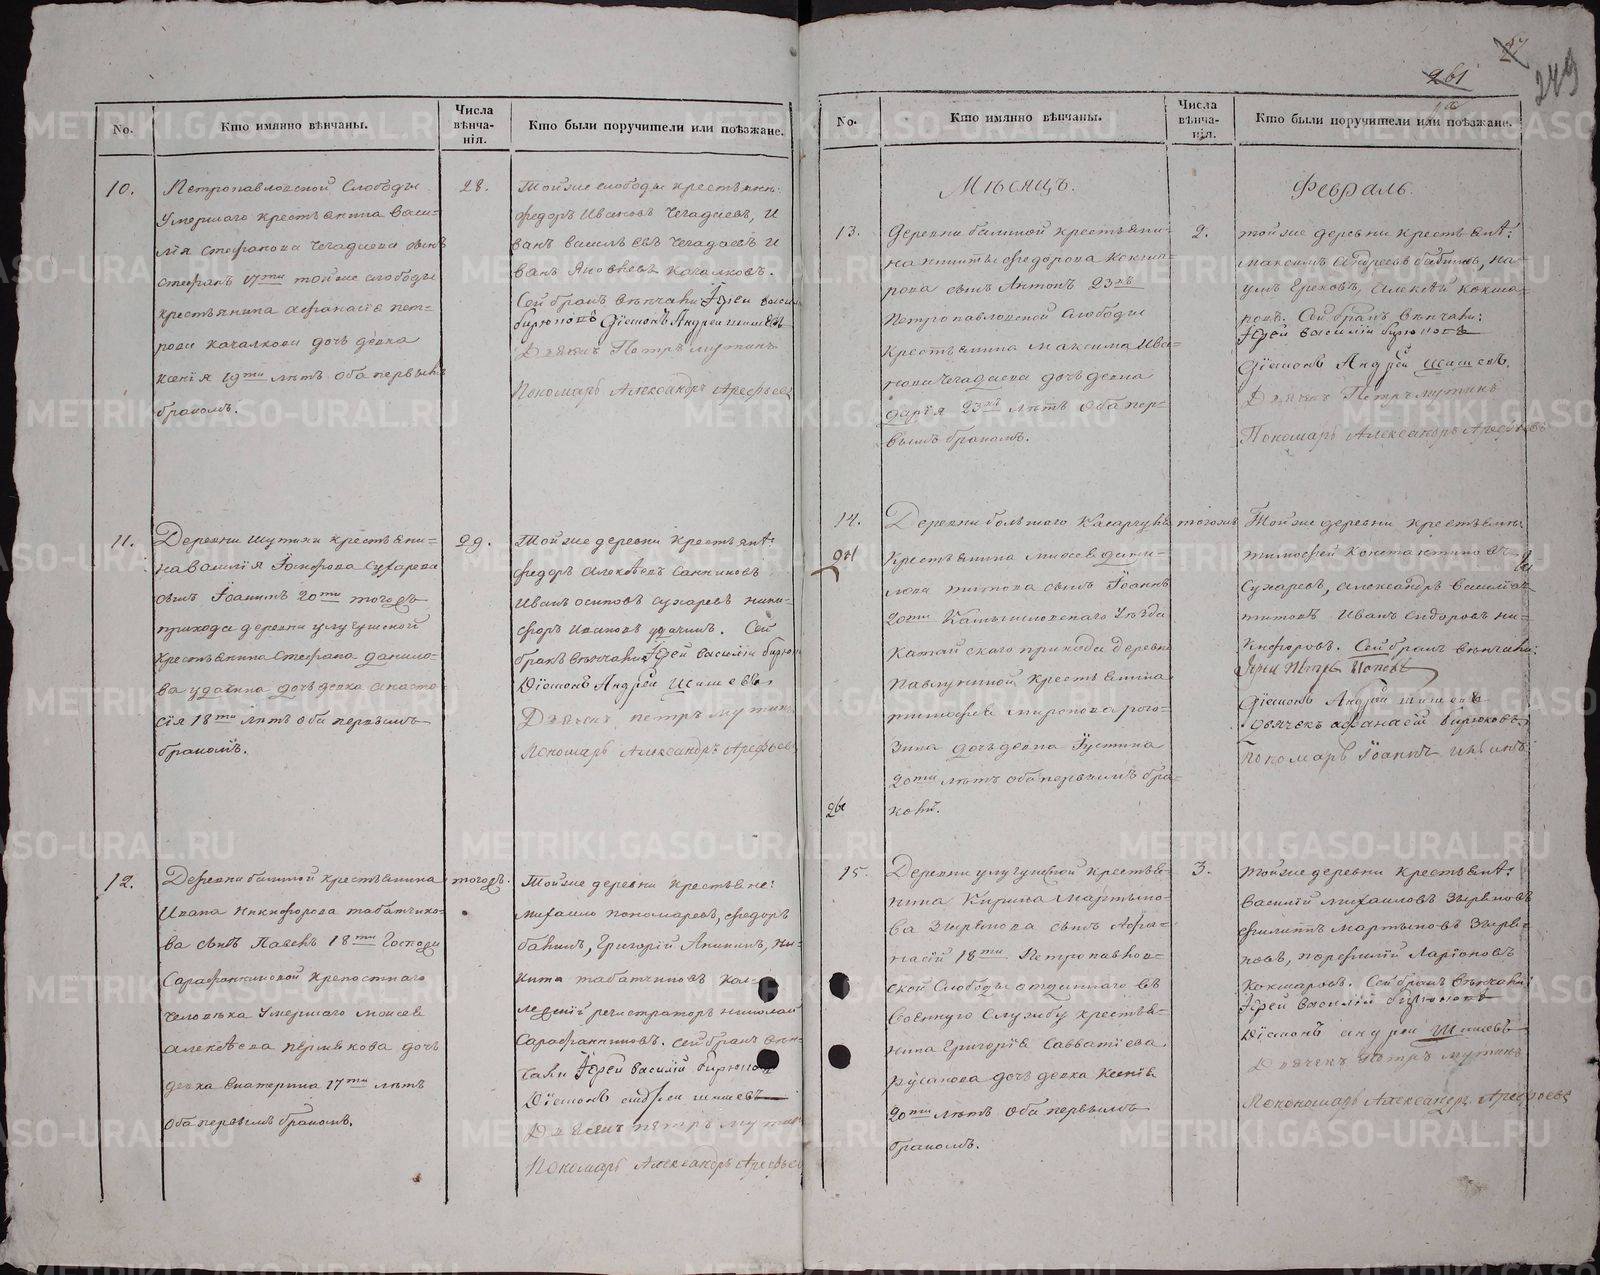 261
249
No.
Кто имянно вѣнчаны.
Числа
вѣнча-
нія.
Кто были поручители или поѣзжане.
10.
Петропавловской Слободы
умершаго крестьянина Васи-
лія Стефанова Чегадаева сынъ
Стефанъ 17ти тойже слободы
крестьянина Афанасія Пет-
рова Качалкова дочь девка
Ксенія 19ти лѣтъ оба первымъ
бракомъ.
28.
Тойже слободы крестьяне:
Федоръ Ивановъ Чегадаевъ, И
ванъ Васильевъ Чегадаевъ И
ванъ Яковлевъ Качалковъ.
Сей бракъ вѣнчали Іерей Васи
Бирюковъ Діаконъ Андрей Шишевъ
Дьячекъ Петръ Мутинъ
Пономарь Александръ Арефьев
11.
Деревни Шутихи крестьяни-
на Василія Іосифова Сухарева
сынъ Іоаннъ 20ти тогожъ
прихода деревни Улугушской
крестьянина Стефана Данило-
ва Удачина дочь девка Анаста-
сія 18ти лѣтъ оба первымъ
бракомъ.
29.
Тойже деревни крестьяне:
Федоръ Алексѣевъ Санниковъ
Иванъ Осиповъ Сухаревъ Ники-
форъ Ивановъ Удачинъ. Сей
бракъ вѣнчали Іерей Василій Бирюк
Діаконъ Андрей Шишевъ
Дьячекъ Петръ Мутинъ
Пономарь Александръ Арефьев
12.
Деревни Бакиной крестьянина
Ивана Никифорова Табатчико-
ва сынъ Павелъ 18ти Господи
Сарафанниковой крепостнаго
человека умершаго Моисея
Алексѣева Пермякова дочь
девка Екатерина 17ти лѣтъ
оба первымъ бракомъ.
тогожъ.
Тойже деревни крестьяне:
Михайло Пономаревъ, Федоръ
Бакинъ, Григорій Аникинъ, Ни-
кита Табатчиковъ Кол-
лежскій регистраторъ Николай
Сарафанниковъ. Сей бракъ вѣн-
чали Іерей Василій Бирюков
Діаконъ Андрей Шишевъ
Дьячекъ Петръ Мутин
Пономарь Александръ Арефьев
No.
Кто имянно вѣнчаны.
Числа
вѣнча-
нія.
Кто были поручители или поѣзжане.
Мѣсяцъ.
Февраль.
13.
Деревни Бакиной крестьяни-
на Никиты Федорова Кокша-
рова сынъ Антонъ 23хъ
Петропавловской Слободы
крестьянина Максима Ива-
нова Чегадаева дочь девка
Дарія 23хъ лѣтъ оба пер-
вымъ бракомъ.
2.
тойже деревни крестьяне:
Максимъ Андреевъ Бабинъ, На-
умъ Ереховъ, Алексѣй Кокша-
ровъ. Сей бракъ вѣнчали:
Іерей Василій Бирюковъ
Діаконъ Андрей Шишевъ.
Дьячекъ Петръ Мутинъ
Пономарь Александръ Арефьевъ
14.
Деревни большаго Касаргулъ
крестьянина Моисея Дани-
лова Титова сынъ Іоаннъ
20ти Камышловскаго Уѣзда
Катайскаго прихода деревни
Павлуниной крестьянина
Тимофея Миронова Рого-
зина дочь девка Іустина
20ти лѣтъ оба первымъ бра-
комъ.
тогожъ
Тойже деревни крестьяны
Тимофей Константиновъ
Сухаревъ, Александръ Васильев
Титовъ Иванъ Сидоровъ Ни-
кифоровъ. Сей бракъ вѣнчали:
Іерей Петръ Поповъ
Діаконъ Андрей Шишевъ
Дьячекъ Афанасій Бирюковъ
Пономарь Іоаннъ
15.
Деревни Улугушской крестья-
нина Кирила Мартыно-
ва Зырянова сынъ Афа-
насій 18ти Петропавлов-
ской Слободы отданнаго въ
военную службу крестья-
нина Григорія Савватіева
Русакова дочь девка Ксенія
20ти лѣтъ оба первымъ
бракомъ.
3.
тойже деревни крестьяне:
Василій Михаиловъ Зыряновъ
Филиппъ Мартыновъ Зыря-
новъ, Порфирій Ларіоновъ
Кокшаровъ. Сей бракъ вѣнчали
Іерей Василій Бирюковъ
Діаконъ Андрей Шишевъ
Дьячекъ Петръ Мутинъ
Пономарь Александръ Арефьевъ
METRIKI.GASO-URAL.RU